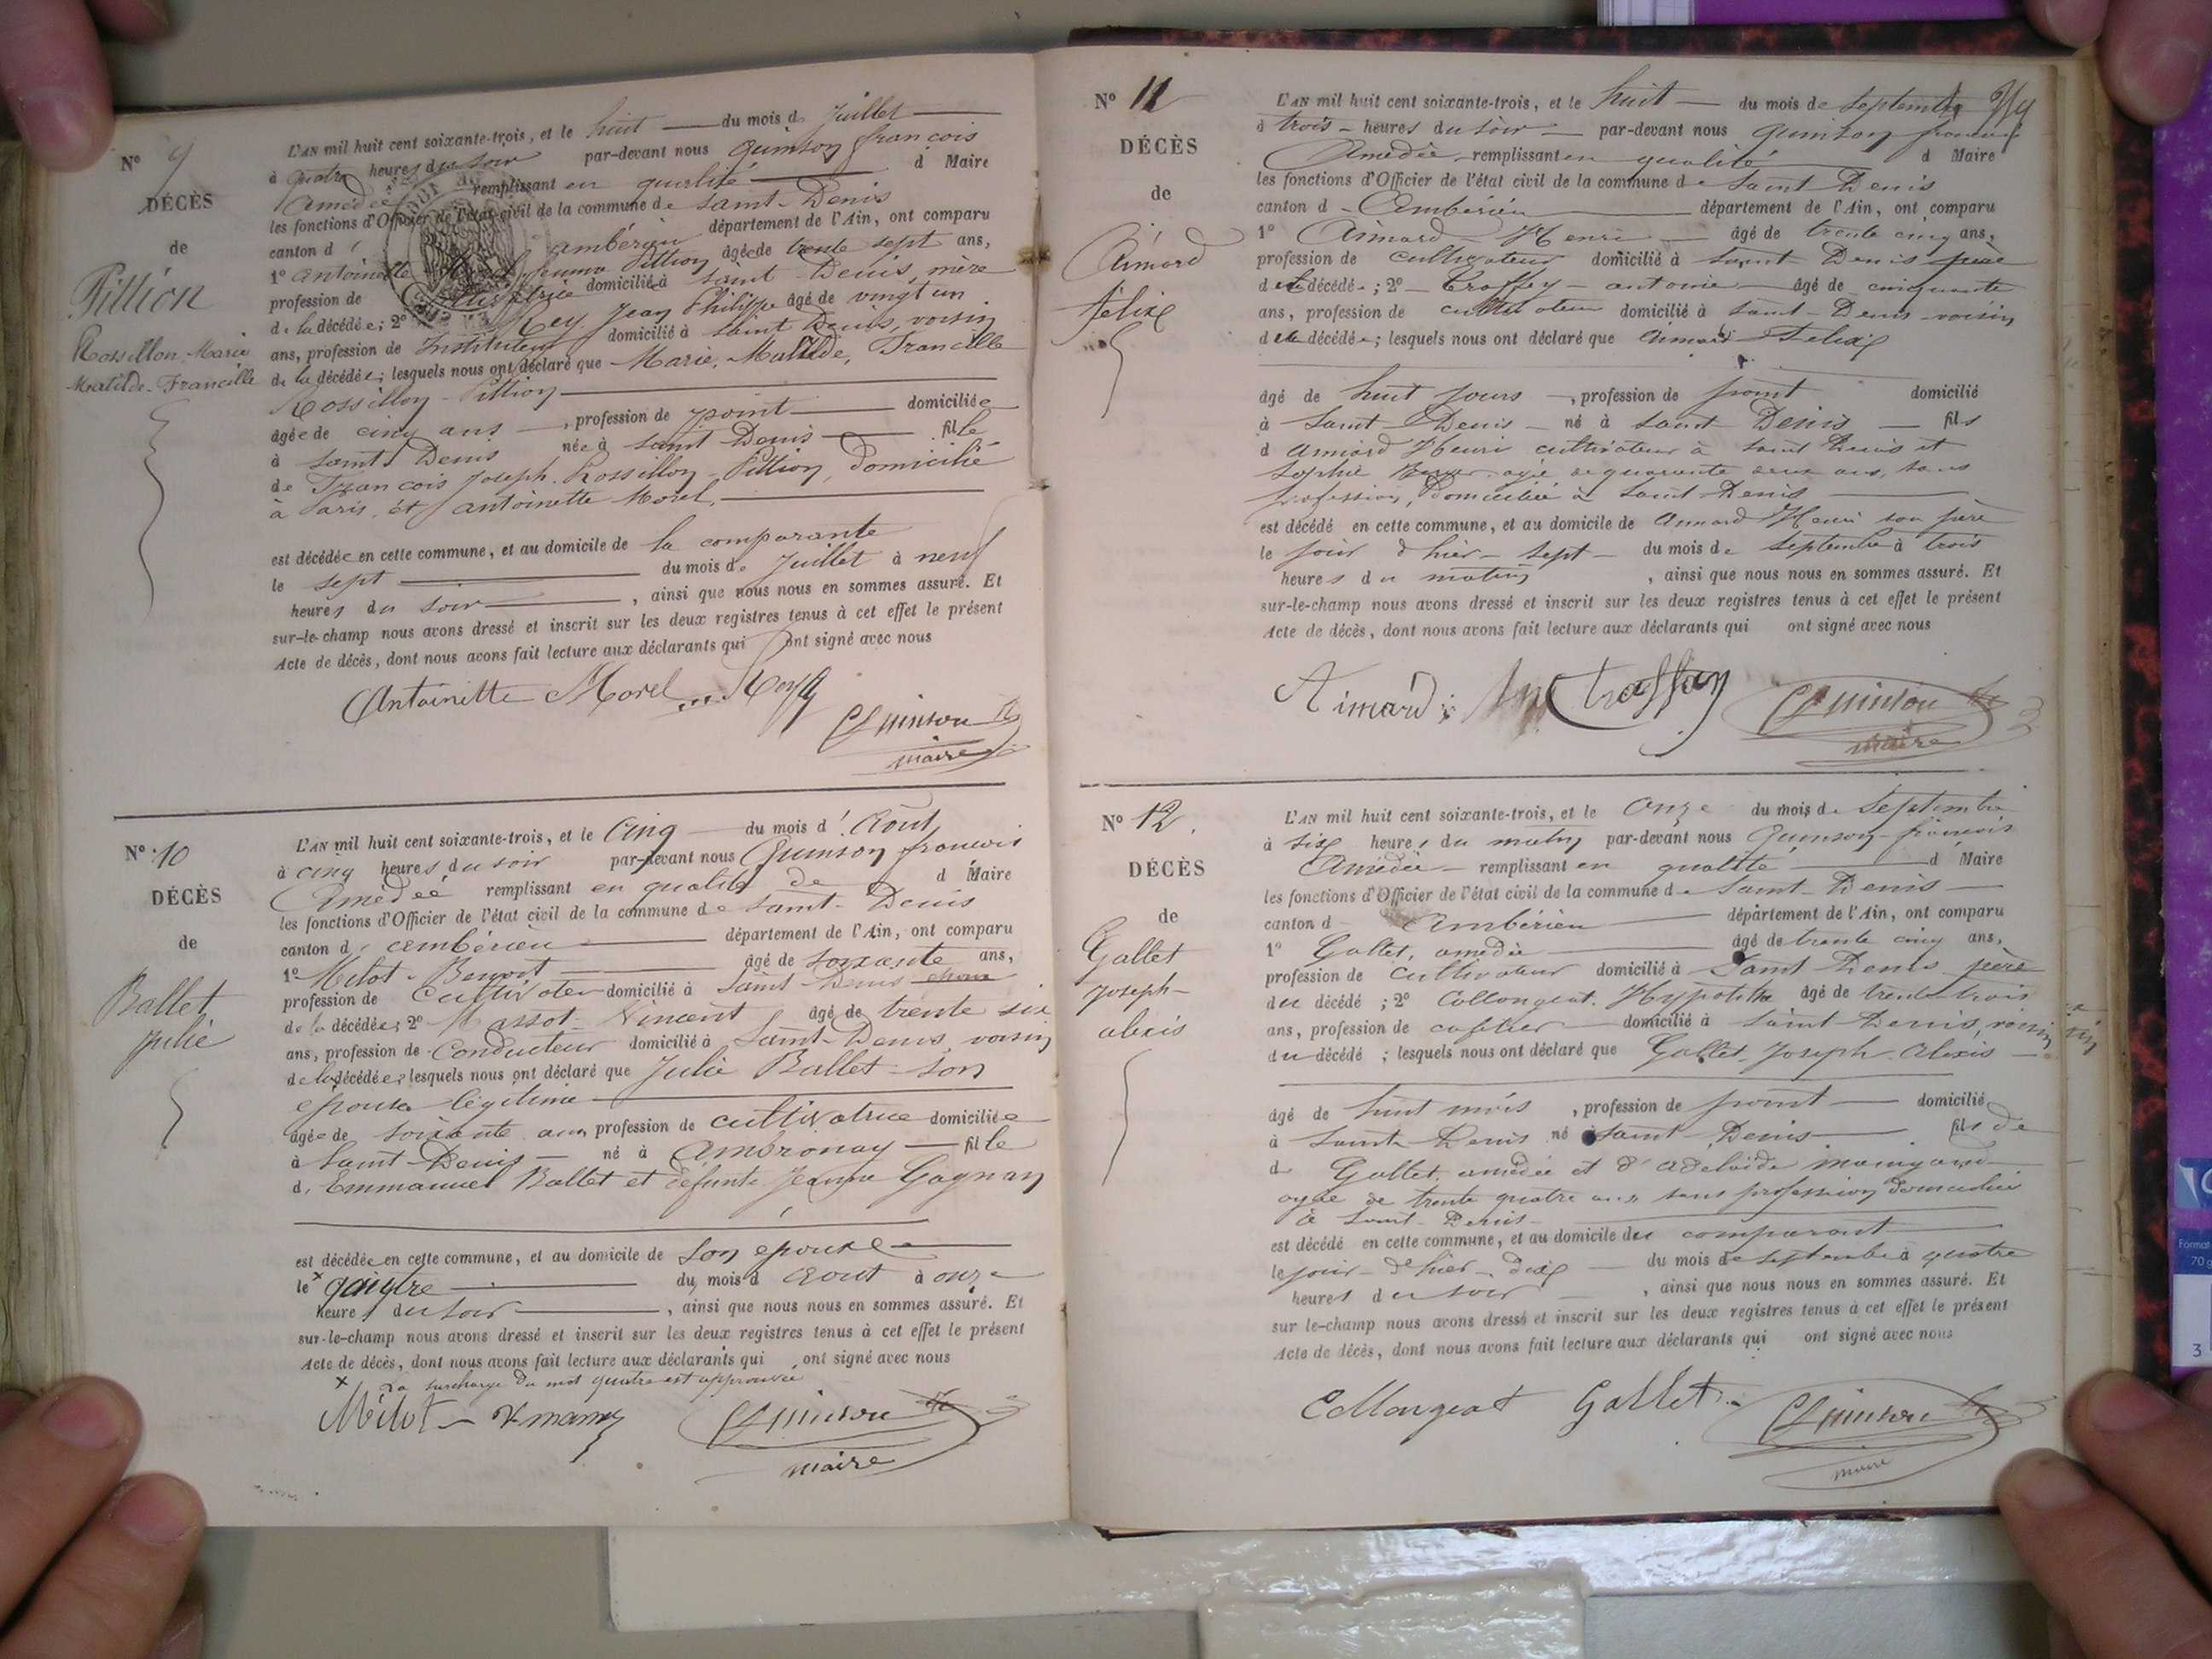 N° 9
DÉCÈS
de
Pittion
Rossillon, Marie
Matilde-Francille
L'AN mil huit cent soixante-trois, et le huit du mois d Juillet
à quatre heures du soir par-devant nous Quinson françois
Amédée remplissant en qualité d Maire
les fonctions d'Officier de l'état civil de la commune de Saint-Denis
canton d' ambérieu département de l'Ain, ont comparu
1° Antoinette Morel, femme Pittion âgée de trente sept ans,
profession de domiciliée à Saint Denis, mère
de la décédée; 2° Rey Jean Philippe âgé de vingt un
ans, profession de Instituteur domicilié à Saint Denis, voisin
de la décédée; lesquels nous ont déclaré que Marie, Matilde, Francille
Rossillon-Pittion
âgée de cinq ans, profession de point domiciliée
à Saint Denis née à Saint Denis fille
de François Joseph Rossillon-Pittion, domicilié
à Paris, et antoinette Morel,
est décédée en cette commune, et au domicile de la comparante
le sept du mois de Juillet à neuf
heures du soir, ainsi que nous nous en sommes assuré. Et
sur-le-champ nous avons dressé et inscrit sur les deux registres tenus à cet effet le présent
Acte de décès, dont nous avons fait lecture aux déclarants qui ont signé avec nous
Antoinette Morel Rey
Quinson
maire
N° 10
DÉCÈS
de
Ballet
julie
L'AN mil huit cent soixante-trois, et le cinq du mois d'Août
à cinq heures du soir par-devant nous Quinson françois
Amédée remplissant en qualité de d Maire
les fonctions d'Officier de l'état civil de la commune de Saint-Denis
canton d'ambérieu département de l'Ain, ont comparu
1° Milot-Benoit âgé de soixante ans,
profession de Cultivateur domicilié à Saint-Denis époux
de la décédée; 2° Massot Vincent âgé de trente six
ans, profession de Conducteur domicilié à Saint-Denis, voisin
de la décédée; lesquels nous ont déclaré que Julie Ballet son
épouse légitime
âgée de soixante ans, profession de cultivatrice domiciliée
à Saint-Denis né à Ambronay fille
d'Emmanuel Ballet et défunte Jeanne Gagnan
est décédée en cette commune, et au domicile de son épouse
le × quatre du mois d Aout à onze
heures du soir, ainsi que nous nous en sommes assuré. Et
sur-le-champ nous avons dressé et inscrit sur les deux registres tenus à cet effet le présent
Acte de décès, dont nous avons fait lecture aux déclarants qui ont signé avec nous
× La surcharge du mot quatre est approuvée
Milot
Quinson
maire
N° 11
DÉCÈS
de
Aimard
félix
L'AN mil huit cent soixante-trois, et le huit du mois de Septembre
à trois heures du soir par-devant nous Quinson françois
Amédée remplissant en qualité d Maire
les fonctions d'Officier de l'état civil de la commune de Saint Denis
canton d'Ambérieu département de l'Ain, ont comparu
1° Aimard Henri âgé de trente cinq ans,
profession de cultivateur domicilié à Saint Denis père
du décédé; 2° Troffey antoine âgé de cinquante
ans, profession de cultivateur domicilié à Saint-Denis voisin
du décédé; lesquels nous ont déclaré que Aimard Felix
âgé de huit jours, profession de point domicilié
à Saint Denis né à Saint Denis fils
d Aimard Henri cultivateur à Saint Denis et
Sophie agée de quarante deux ans, sans
profession, domiciliée à Saint-Denis
est décédé en cette commune, et au domicile de Aimard Henri son père
le jour d'hier sept du mois de Septembre à trois
heures du matin, ainsi que nous nous en sommes assuré. Et
sur-le-champ nous avons dressé et inscrit sur les deux registres tenus à cet effet le présent
Acte de décès, dont nous avons fait lecture aux déclarants qui ont signé avec nous
Aimard Troffay Quinson
maire
N° 12
DÉCÈS
de
Gallet
joseph-
alexis
L'AN mil huit cent soixante-trois, et le onze du mois de Septembre
à six heures du matin par-devant nous Quinson françois
Amédée remplissant en qualité d Maire
les fonctions d'Officier de l'état civil de la commune de Saint-Denis
canton d Ambérieu département de l'Ain, ont comparu
1° Gallet, amédée âgé de trente cinq ans,
profession de cultivateur domicilié à Saint Denis père
du décédé; 2° Collongeat, Hypolithe âgé de trente-trois
ans, profession de cafetier domicilié à Saint-Denis, voisin
du décédé; lesquels nous ont déclaré que Gallet Joseph Alexis
âgé de huit mois, profession de point domicilié
à Saint-Denis né à Saint-Denis fils de
d Gallet, amédée et d'adélaïde
agée de trente quatre ans sans profession domiciliée
à Saint-Denis
est décédé en cette commune, et au domicile du comparant
le jour d'hier dix du mois de septembre à quatre
heures du soir, ainsi que nous nous en sommes assuré. Et
sur le-champ nous avons dressé et inscrit sur les deux registres tenus à cet effet le présent
Acte de décès, dont nous avons fait lecture aux déclarants qui ont signé avec nous
Collongeat Gallet Quinson
maire
Format
70 g
3